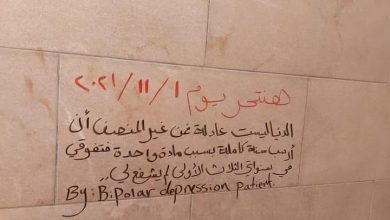 هنتحر يوم ٢٠٢١/١١/١
الدنيا ليست عادلة فمن غير المنصف أن
أرسب سنة كاملة بسبب مادة واحدة فتفوقي
في سنواتي الثلاث الأولى لم يشفع لي ..
By: Bipolar depression patient.